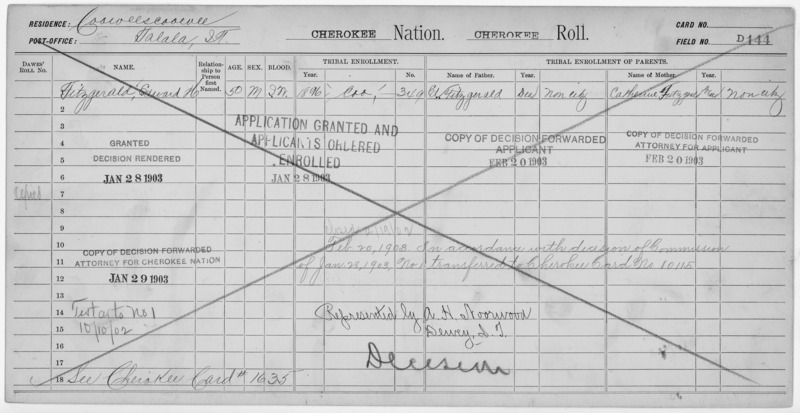 RESIDENCE: Cooweescoowee
POST-OFFICE: Talala, I.T.
CHEROKEE Nation. CHEROKEE Roll.
CARD NO.
FIELD NO. D444
DAWES' ROLL NO. NAME. Relationship to Person first Named. AGE. SEX. BLOOD. TRIBAL ENROLLMENT. TRIBAL ENROLLMENT OF PARENTS.
Year. No. Name of Father. Year. District. Name of Mother. Year. District.
Fitzgerald, Edward H 50 M I.W. 1896 Coo, 349 Fitzgerald Ded Non citz Catherine Non citz
2
3
4 GRANTED
5 DECISION RENDERED
6 JAN 28 1903
APPLICATION GRANTED AND APPLICANTS ORDERED ENROLLED
JAN 28 1903
COPY OF DECISION FORWARDED
APPLICANT
FEB 20 1903
COPY OF DECISION FORWARDED
ATTORNEY FOR APPLICANT
FEB 20 1903
7
8
9
10 Feb. 20, 1903. In accordance with decision of Commission
11 of Jan. 28, 1903, No 1 transferred to Cherokee Card No. 10115
COPY OF DECISION FORWARDED
ATTORNEY FOR CHEROKEE NATION
12 JAN 29 1903
13
14 Testa as to No 1
15 10/10/02
Represented by A. H. Norwood
Dewey, I. T.
16
Decision
17
18 See Cherokee Card # 1635